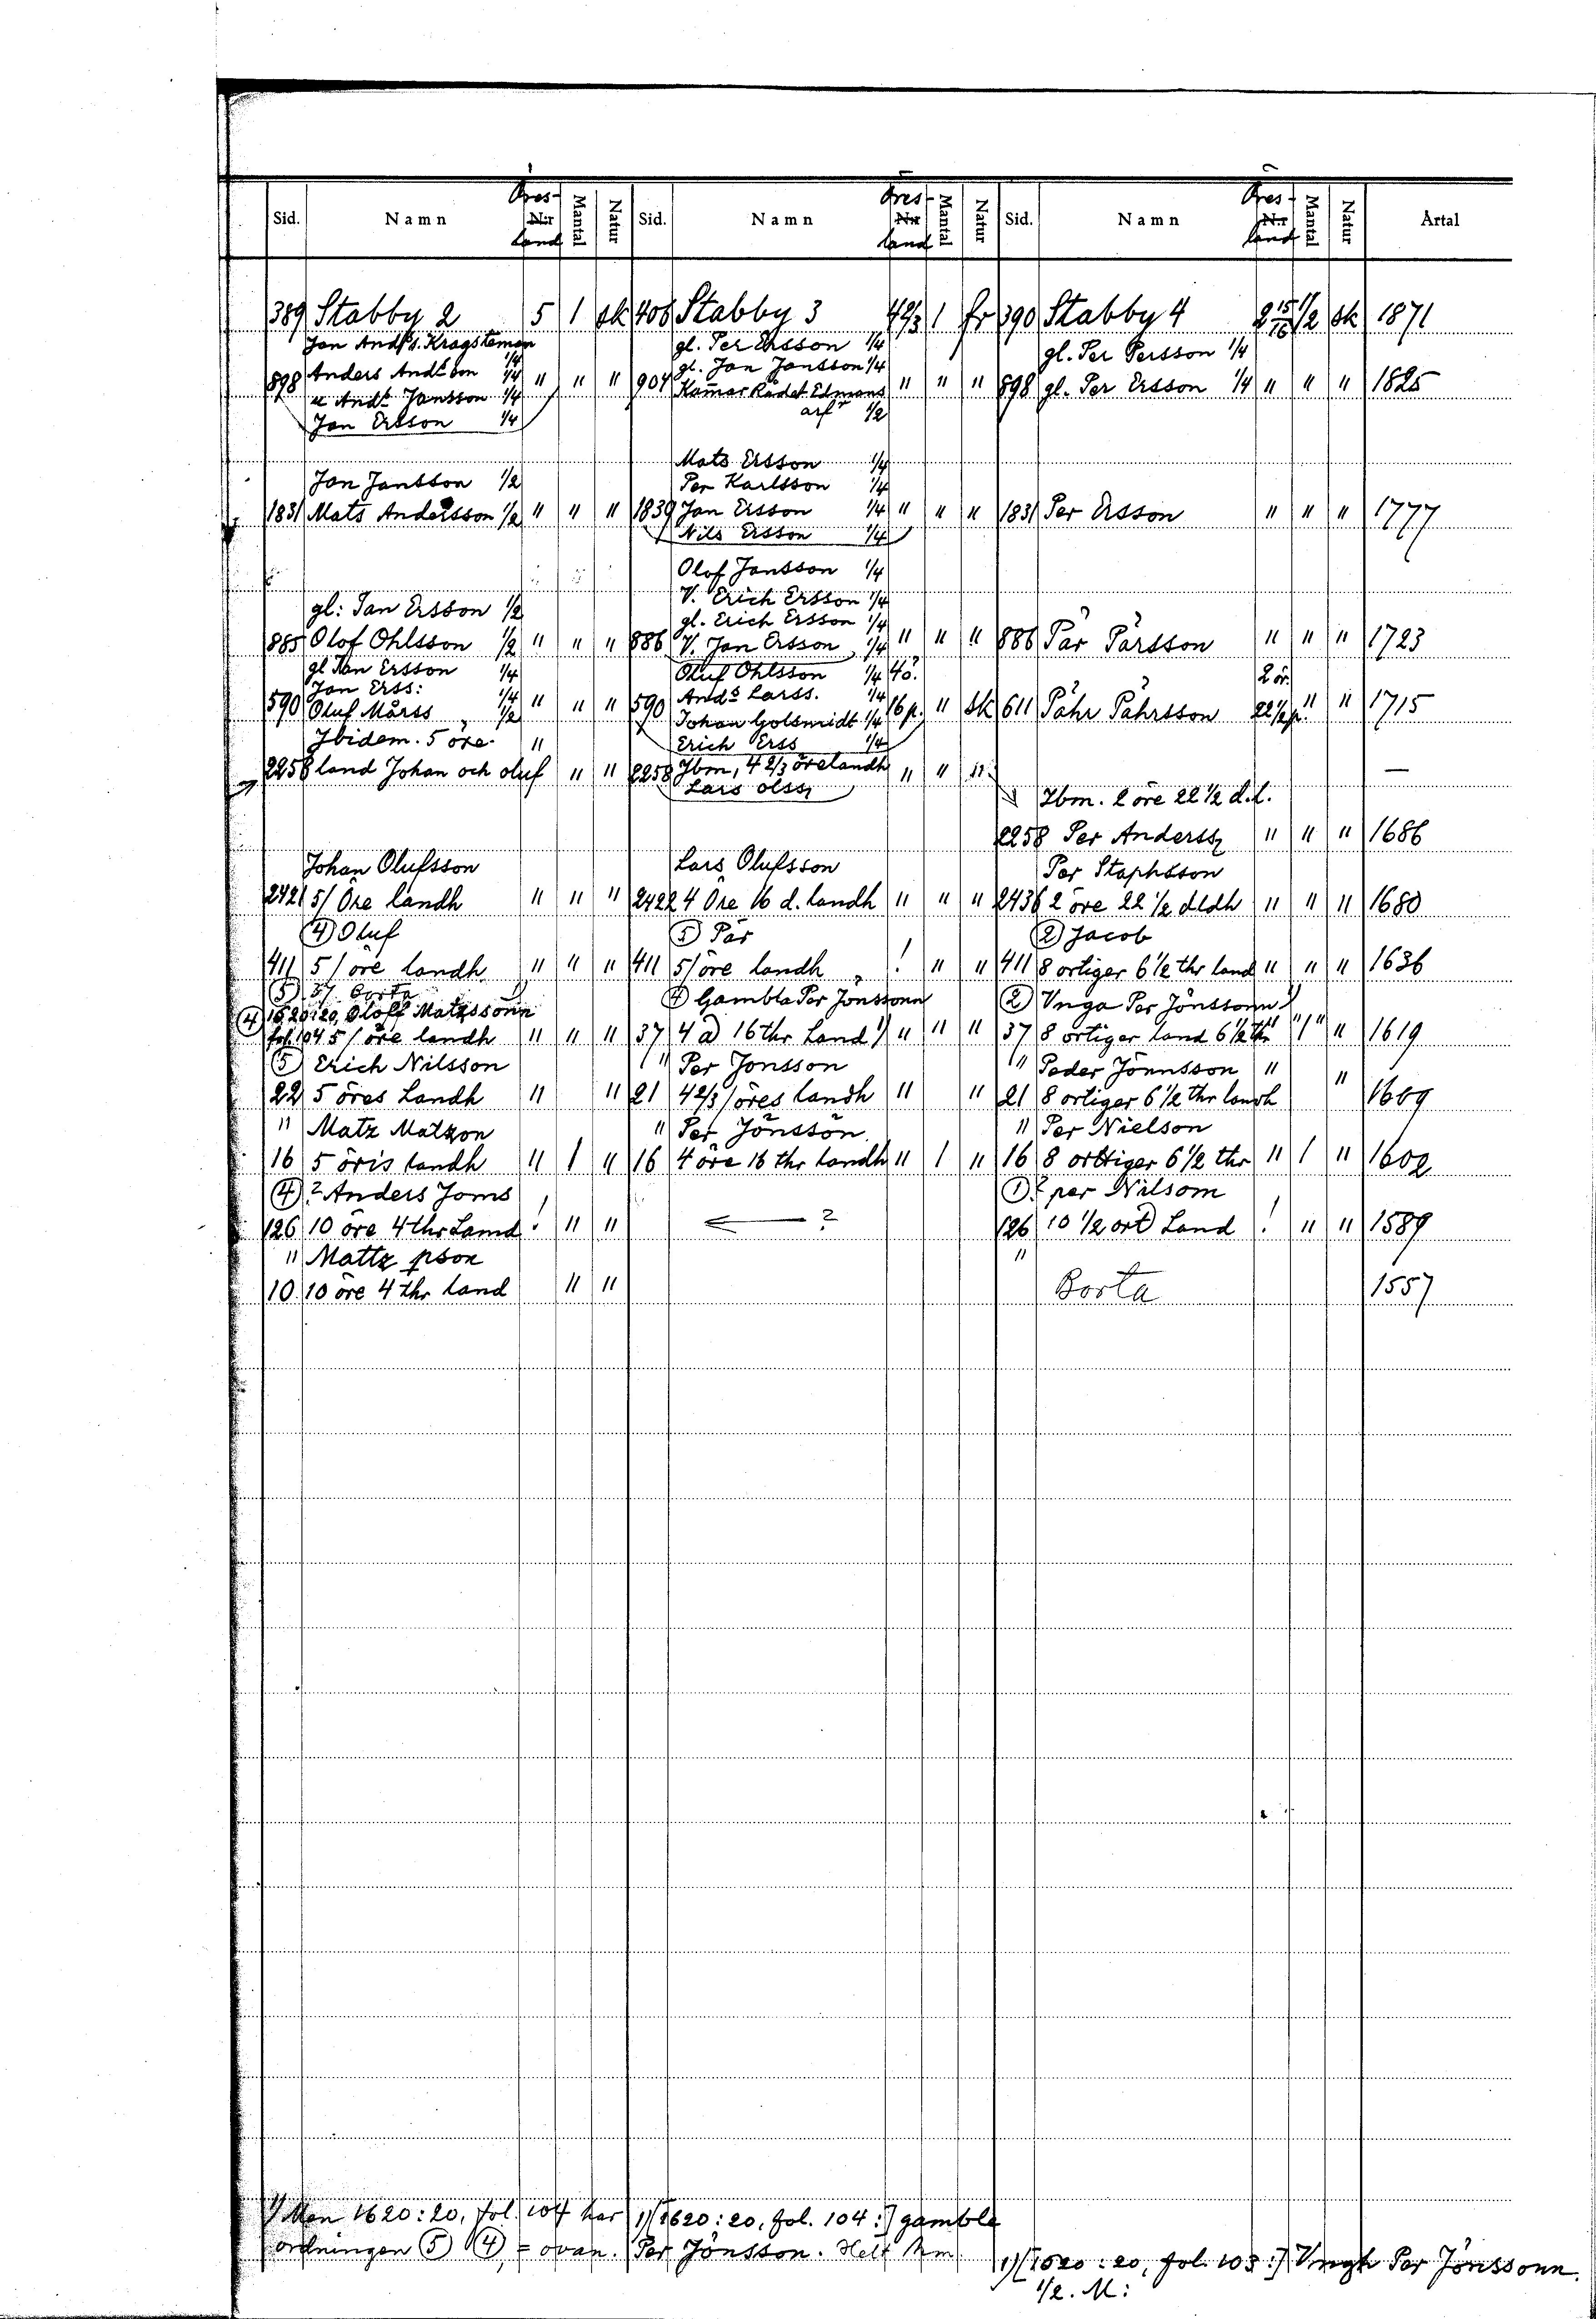 Sid. Namn Öres- Nr land Mantal Natur Sid. Namn Öres- Nr land Mantal Natur Sid. Namn Öres- Nr land Mantal Natur Årtal
389 Stabby 2 5 1 sk 406 Stabby 3 4 2/3 1 fr 390 Stabby 4 2 15/16 1/2 sk 1871
Jan And:s. Kragsteman 1/4 gl. Per Ersson 1/4 gl. Per Persson 1/4
Anders And:son 1/4 gl. Jan Jansson 1/4
898 And:s Jansson 1/4 " " " 904 Kam̄ar Rådet Edmans " " " 898 gl. Per Ersson 1/4 " " " 1825
Jan Ersson 1/4 arf 1/2
Mats Ersson 1/4
Jan Jansson 1/2 Per Karlsson 1/4
1831 Mats Andersson 1/2 " " " 1839 Jan Ersson 1/4 " " " 1831 Per Ersson " " " 1777
Nils Ersson 1/4
Olof Jansson 1/4
gl: Jan Ersson 1/2 V. Erich Ersson 1/4
gl. Erich Ersson 1/4
885 Olof Ohlsson 1/2 " " " 886 V. Jan Ersson 1/4 " " " 886 Pär Pärsson " " " 1723
gl Jan Ersson 1/4 Oluf Ohlsson 1/4 4ö. 2 ör.
Jan Erss: 1/4 And:s Larss. 1/4
590 Oluf Mårss 1/2 " " " 590 Johan Golsmidt 1/4 16 p. " sk 611 Påhr Påhrsson 22 1/2 p. " " 1715
Jbidem. 5 öre " Erich Erss 1/4
2258 land Johan och oluf " " 2258 Jbm, 4 2/3 örelandh " " " —
Lars olss Jbm. 2 öre 22 1/2 d.l.
2258 Per Anderss " " " 1686
Johan Olufsson Lars Olufsson Per Staphsson
2421 5/ Öre landh " " " 2422 4 Öre 16 d. landh " " " 2436 2 öre 22 1/2 dldh " " " 1680
④ Oluf ⑤ Pär ② Jacob
411 5/ öre landh " " " 411 5/ öre landh ! " " 411 8 ortiger 6 1/2 thr land " " " 1636
⑤ 37. borta ④ Gambla Per Jönssonn ② Vnga Per Jönssonn 1)
④ 1620:20, Oloff Matzssonn
fol. 104 5/ öre landh " " " 37 4 16 thr Land 1) " " " 37 8 ortiger land 6 1/2 thr " " " 1619
⑤ Erich Nilsson " Per Jonsson " Peder Jönnsson "
22 5 öres Landh " " 21 4 2/3/ öres landh " " 21 8 ortiger 6 1/2 thr landh " 1609
" Matz Matzon " Per Jönsson " Per Nielson
16 5 öris landh " 1 " 16 4 öre 16 thr landh " 1 " 16 8 orttiger 6 1/2 thr " 1 " 1602
④? Anders Joms ①? per Nilsom
126 10 öre 4 thr Lamd ! " " ← ? 126 10 1/2 ort Land ! " " 1589
" Mattz pson "
10 10 öre 4 thr land " " Borta 1557
1) Men 1620:20, fol. 104 har 1) [1620:20, fol. 104:] gamble
ordningen ⑤ ④ = ovan. Per Jönsson. Helt Mm
1) [1620:20, fol. 103:] Vngh Per Jönssonn.
1/2. M: